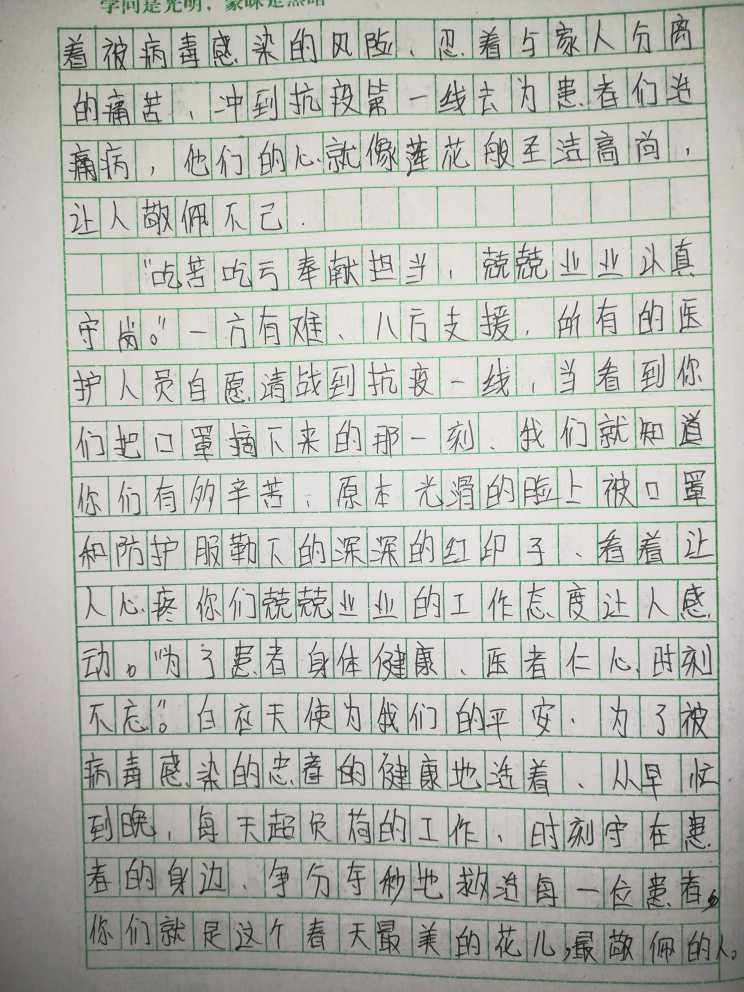 学问是光明，蒙昧是黑暗
着被病毒感染的风险、忍着与家人分离
的痛苦，冲到抗疫第一线去为患者们治
痛病，他们的心就像莲花般圣洁高尚，
让人敬佩不已.
“吃苦吃亏奉献担当，兢兢业业认真
守岗。”一方有难、八方支援，所有的医
护人员自愿请战到抗疫一线，当看到你
们把口罩摘下来的那一刻、我们就知道
你们有多辛苦、原本光滑的脸上被口罩
和防护服勒下的深深的红印子、看着让
人心疼你们兢兢业业的工作态度让人感
动。“为了患者身体健康、医者仁心时刻
不忘”。白衣天使为我们的平安.为了被
病毒感染的患者的健康地活着、从早忙
到晚，每天超负荷的工作、时刻守在患
者的身边、争分夺秒地救治每一位患者，
你们就是这个春天最美的花儿，最敬佩的人。